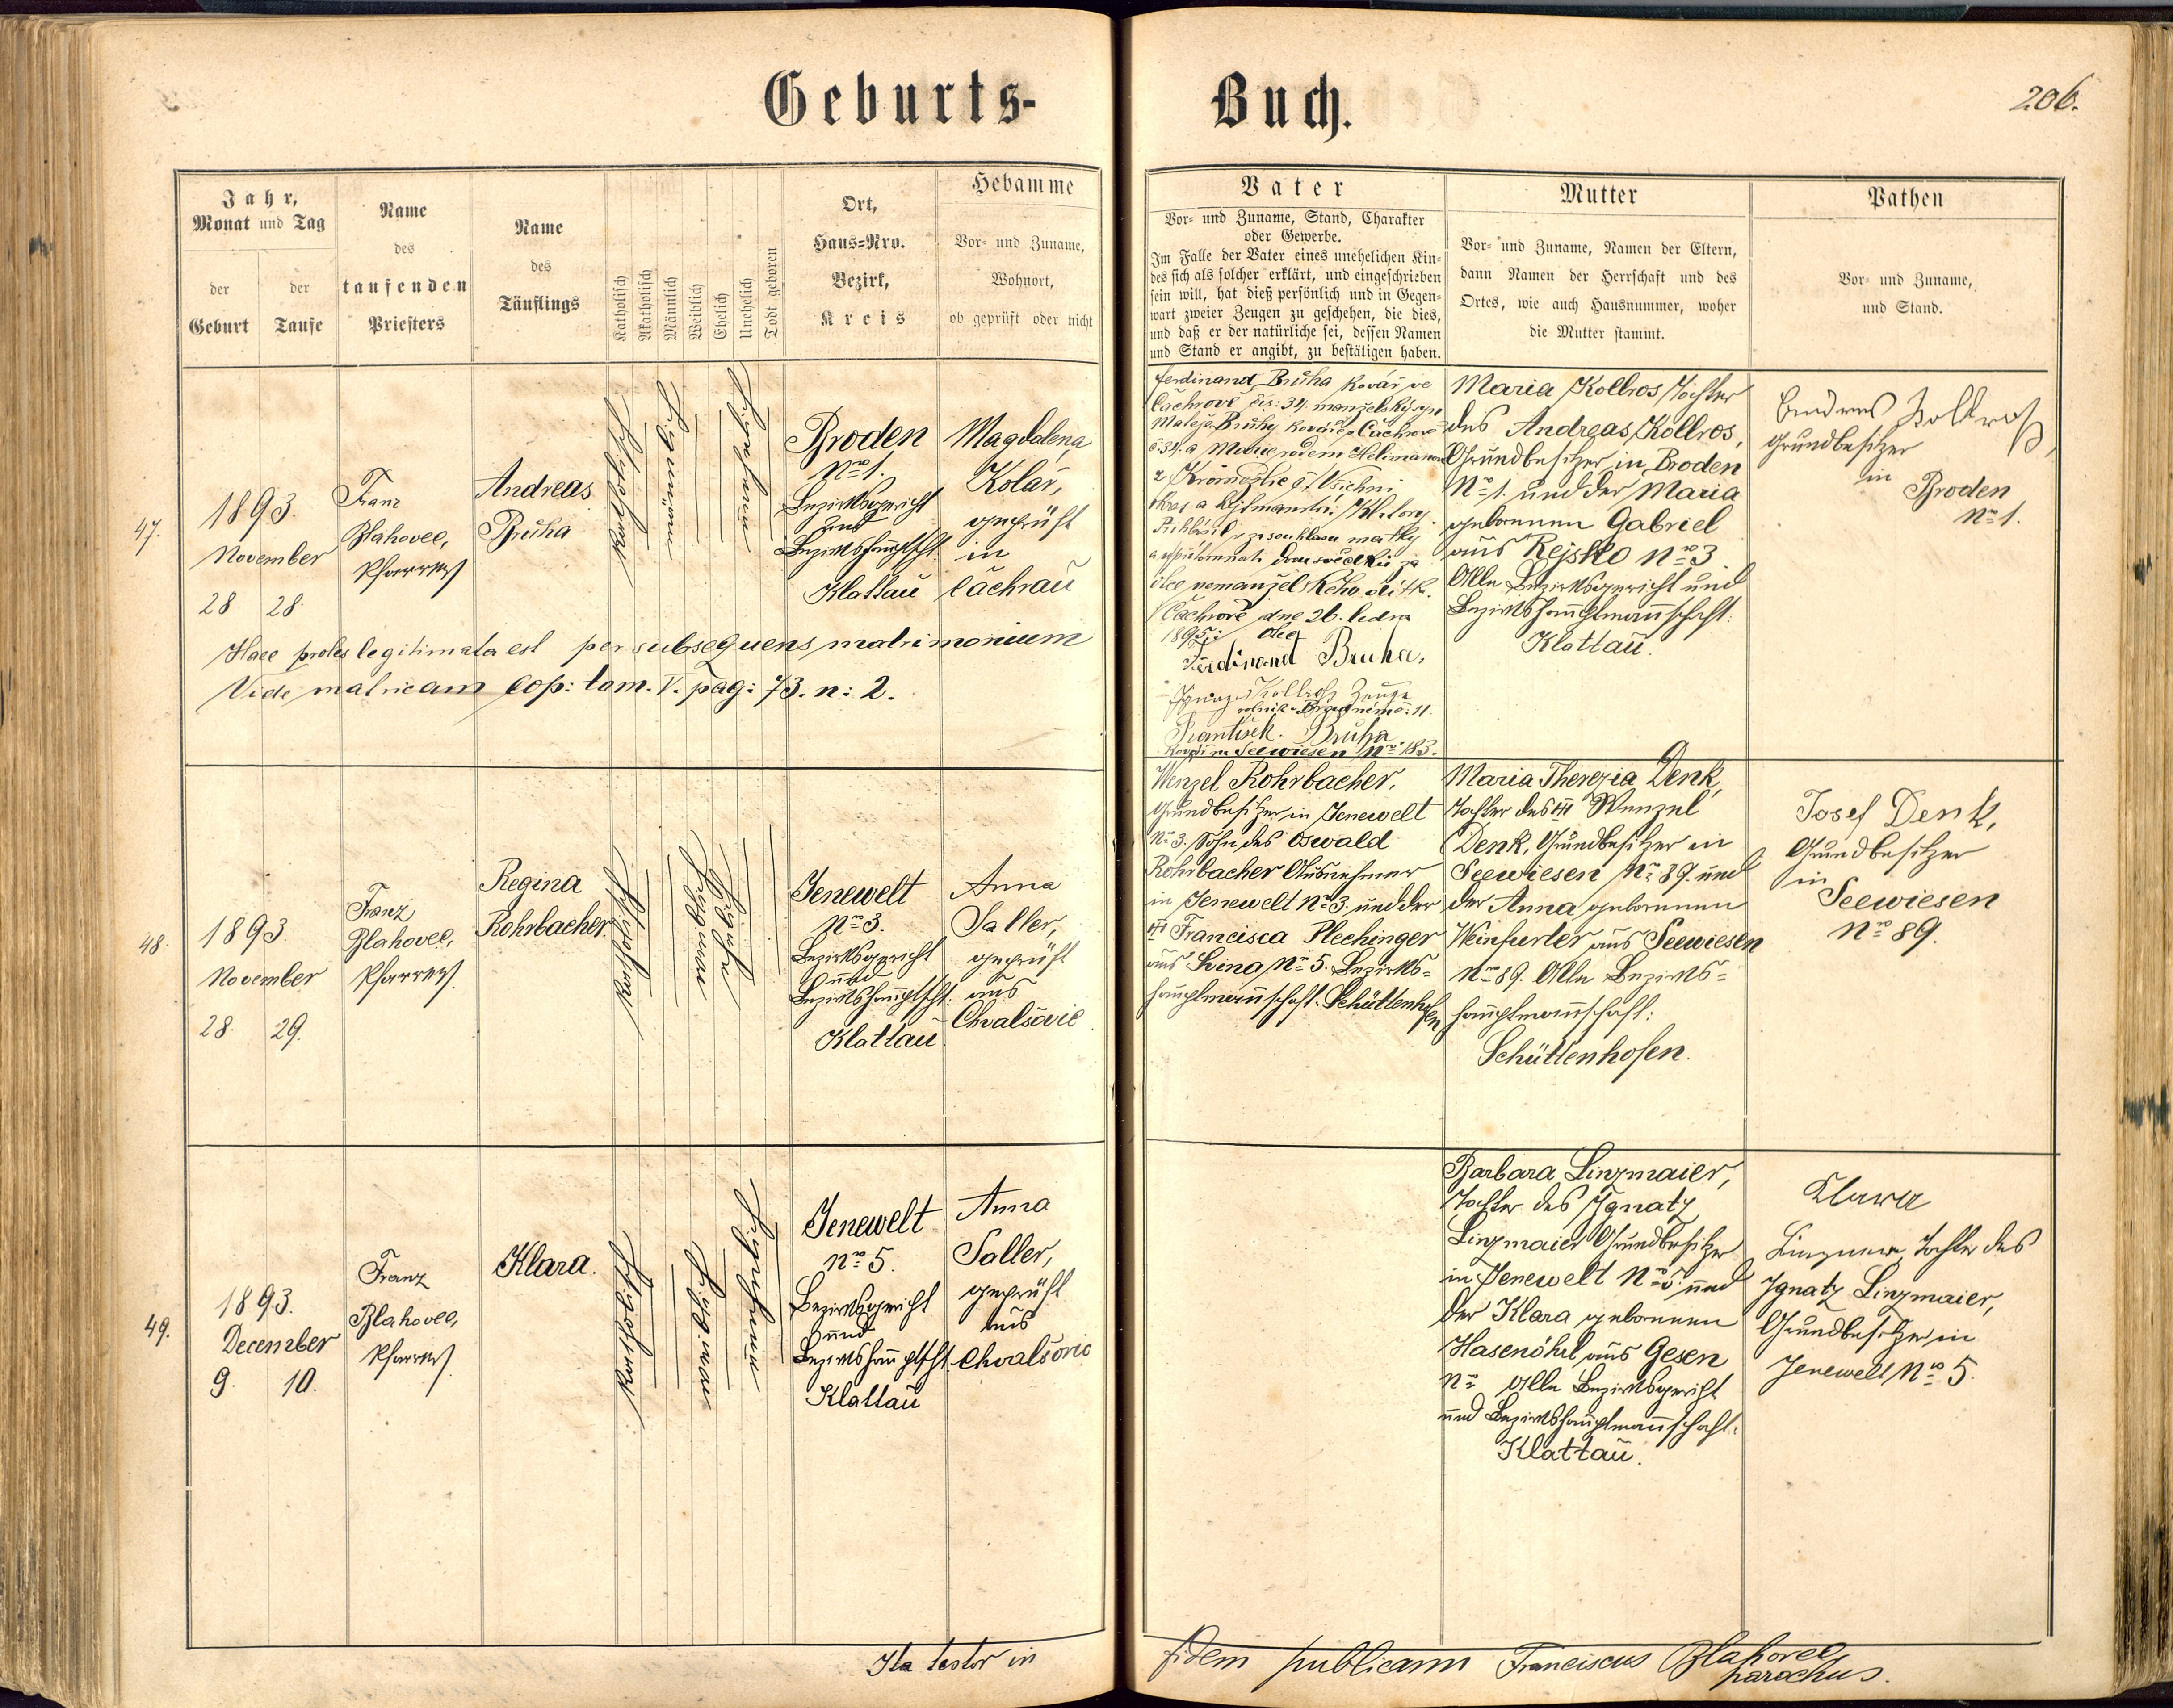 Geburts- Buch.
206.
Jahr,
Monat und Tag
der Geburt
der Taufe
Name
des
taufenden
Priesters
Name
des
Täuflings
Katholisch
Akatholisch
Männlich
Weiblich
Ehelich
Unehelich
Todt geboren
Ort,
Haus-Nro.
Bezirk,
Kreis
Hebamme
Vor- und Zuname,
Wohnort,
ob geprüft oder nicht
Vater
Vor- und Zuname, Stand, Charakter
oder Gewerbe.
Im Falle der Vater eines unehelichen Kin-
des sich als solcher erklärt, und eingeschrieben
sein will, hat dieß persönlich und in Gegen-
wart zweier Zeugen zu geschehen, die dies,
und daß er der natürliche sei, dessen Namen
und Stand er angibt, zu bestätigen haben.
Mutter
Vor- und Zuname, Namen der Eltern,
dann Namen der Herrschaft und des
Ortes, wie auch Hausnummer, woher
die Mutter stammt.
Pathen
Vor- und Zuname,
und Stand.
47.
1893.
November
28 28.
Franz
Blahovec,
Pfarrer
Andreas
Bruha
Katholisch
Broden
Nro 1.
Bezirksgericht
und
Bezirkshauptsch:
Klattau
Magdalena
Kolář,
geprüft
in
Čachrau
Haec proles legitimata est per subsequens matrimonium
Vide matricam Cop: tom. V. pag: 73. n: 2.
Ferdinand Brůha kovář ve
Čachrově čís: 34. manželský syn
Matěje Brůhy kováře z Čachrova
č. 34. a Marie rodem
Všichni
matky
nemanželského dítk.
Čachrově dne 26. ledna
1895:
Ferdinand Bruha,
Ignaz Kollroß Zeuge
František Brůha
Seewiesen Nro 183.
Maria Kollros Tochter
des Andreas Kollros,
Grundbesitzer in Broden
Nro 1. und der Maria
gebornen Gabriel
aus Rejsko Nro 3.
Alle Bezirksgericht und
Bezirkshauptmannschaft:
Klattau.
Andreas Kollroß,
Grundbesitzer
in Broden
Nro 1.
48.
1893.
November
28. 29.
Franz
Blahovec,
Pfarrer.
Regina
Rohrbacher.
Katholisch
Jenewelt
Nro 3.
Bezirksgericht
und
Bezirkshauptsch:
Klattau
Anna
Saller,
geprüft
aus
Chvalšovic
Wenzel Rohrbacher,
Grundbesitzer in Jenewelt
Nro 3. Sohn des Oswald
Rohrbacher Ausnehmer
in Jenewelt Nro 3. und der
Francisca Plechinger
aus Nro 5. Bezirks-
hauptmannschaft: Schüttenhofen
Maria Therezia Denk,
Tochter des Wenzel
Denk, Grundbesitzer in
Seewiesen Nro 89. und
der Anna gebornen
Weinfurter aus Seewiesen
Nro 89. Alle Bezirks-
hauptmannschaft:
Schüttenhofen.
Josef Denk,
Grundbesitzer
in
Seewiesen
Nro 89.
49.
1893.
December
9. 10.
Franz
Blahovec,
Pfarrer.
Klara.
Katholisch
Jenewelt
Nro 5.
Bezirksgericht
und
Bezirkshauptsch:
Klattau
Anna
Saller,
geprüft
aus
Chvalšovic
Barbara Linzmaier,
Tochter des Ignatz
Linzmaier Grundbesitzer
in Jenewelt Nro 5. und
der Klara gebornen
Hasenöhrl aus Gesen
Nro Alle Bezirksgericht
und Bezirkshauptmannschaft:
Klattau.
Klara
Tochter des
Ignatz Linzmaier,
Grundbesitzer in
Jenewelt Nro 5.
Ita testor in fidem publicam Franciscus Blahovec
parochus.